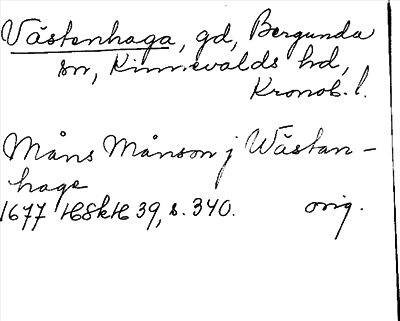 Västenhaga, gd, Bergunda
sn, Kinnevalds hd,
Kronob. l.
Måns Månson j Wästan-
hage
1677 HSkH 39, s. 340. orig.